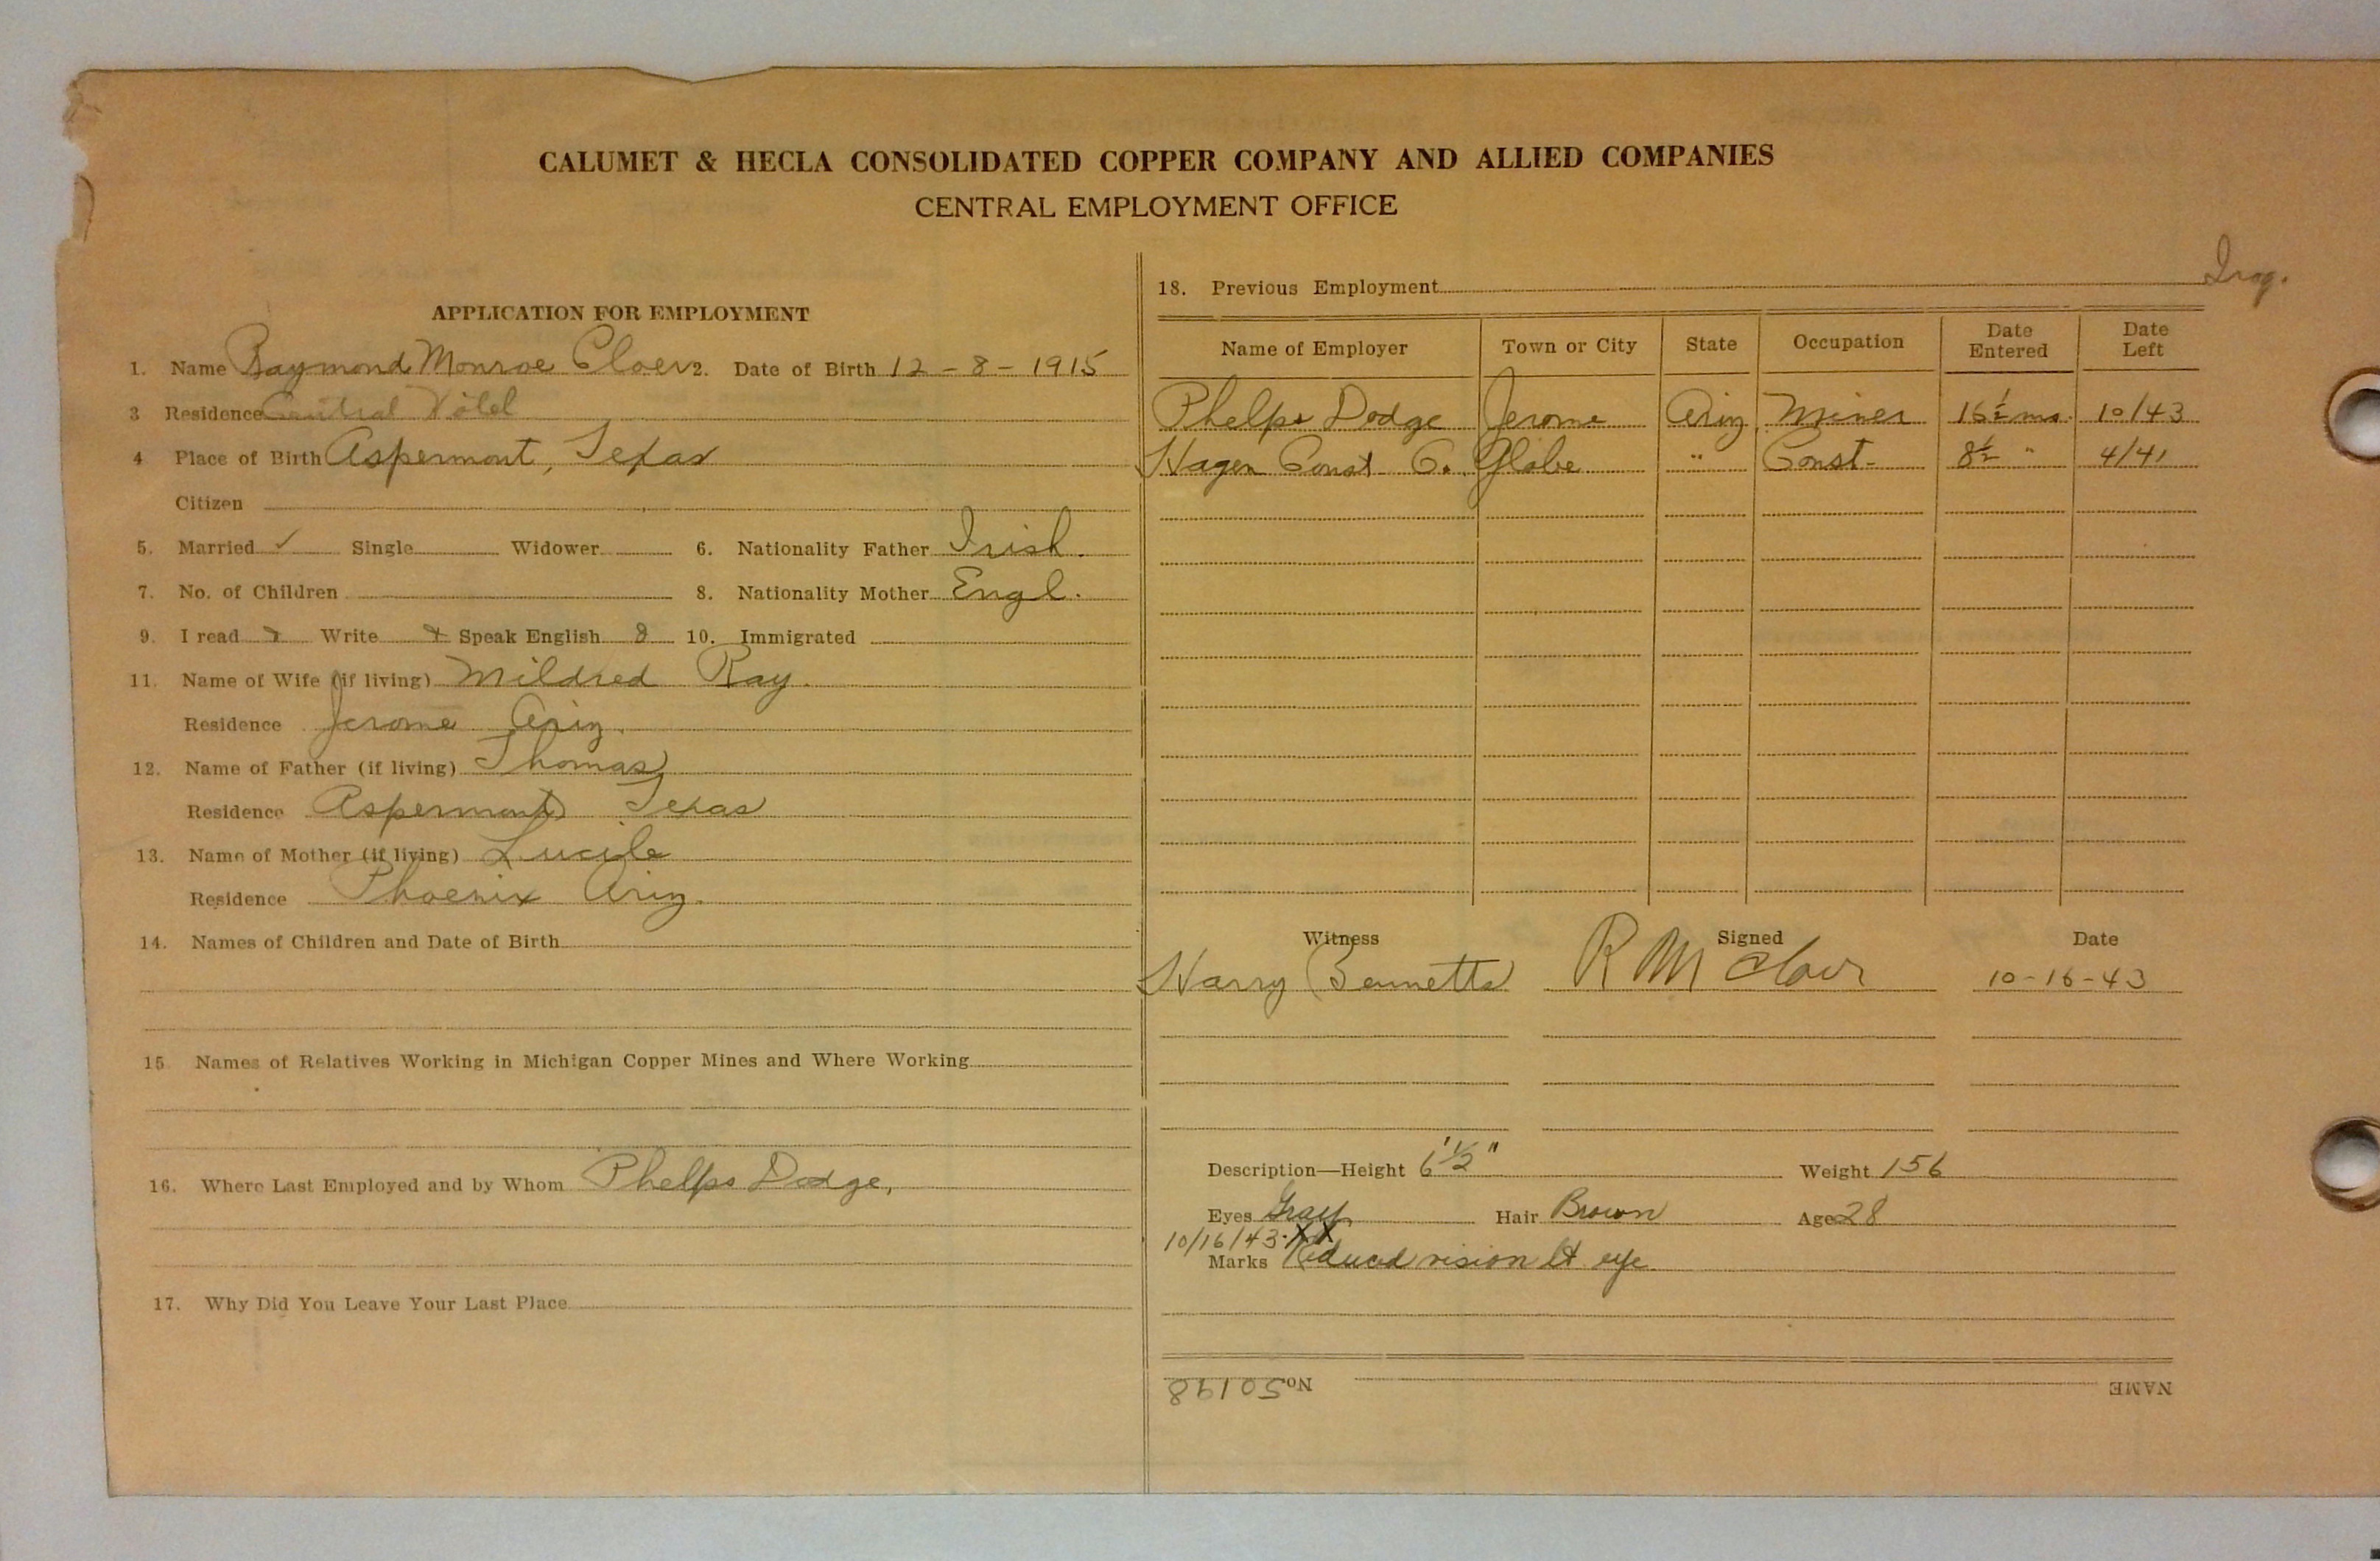 CALUMET & HECLA CONSOLIDATED COPPER COMPANY AND ALLIED COMPANIES
CENTRAL EMPLOYMENT OFFICE
APPLICATION FOR EMPLOYMENT
1. Name Raymond Monroe Cloer 2. Date of Birth 12-8-1915
3 Residence Central Hotel
4 Place of Birth Aspermont, Texas
Citizen
5. Married ✓ Single Widower 6. Nationality Father Irish.
7. No. of Children 8. Nationality Mother Engl.
9. I read Write Speak English 10. Immigrated
11. Name of Wife (if living) Mildred Ray.
Residence Jerome Ariz.
12. Name of Father (if living) Thomas
Residence Aspermont Texas
13. Name of Mother (if living) Lucile
Residence Phoenix Ariz.
14. Names of Children and Date of Birth
15 Names of Relatives Working in Michigan Copper Mines and Where Working
16. Where Last Employed and by Whom Phelps Dodge,
17. Why Did You Leave Your Last Place
18. Previous Employment
Name of Employer Town or City State Occupation Date Entered Date Left
Phelps Dodge Jerome Ariz Miner 16½ mo. 10/43
Hagen Const Co. Globe " Const- 8½ " 4/41
Witness Signed Date
Harry Bennetts R M Cloer 10-16-43
Description—Height 6'½" Weight 156
Eyes Gray Hair Brown Age 28
10/16/43. XX
Marks Reduced vision lt eye
No. 50198 NAME